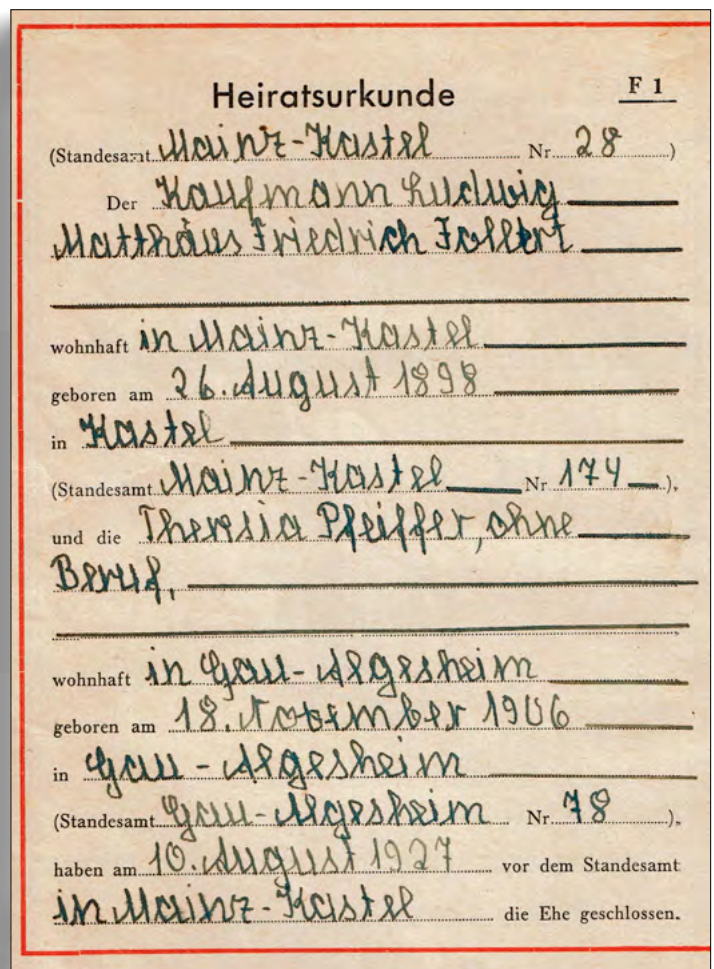 Heiratsurkunde F 1
(Standesamt Mainz-Kastel Nr. 28)
Der Kaufmann Ludwig
Matthäus Friedrich Follert
wohnhaft in Mainz-Kastel
geboren am 26. August 1898
in Kastel
(Standesamt Mainz-Kastel Nr 174),
und die Theresia Pfeiffer, ohne
Beruf,
wohnhaft in Gau-Algesheim
geboren am 18. November 1906
in Gau-Algesheim
(Standesamt Gau-Algesheim Nr. 78),
haben am 10. August 1927 vor dem Standesamt
in Mainz-Kastel die Ehe geschlossen.